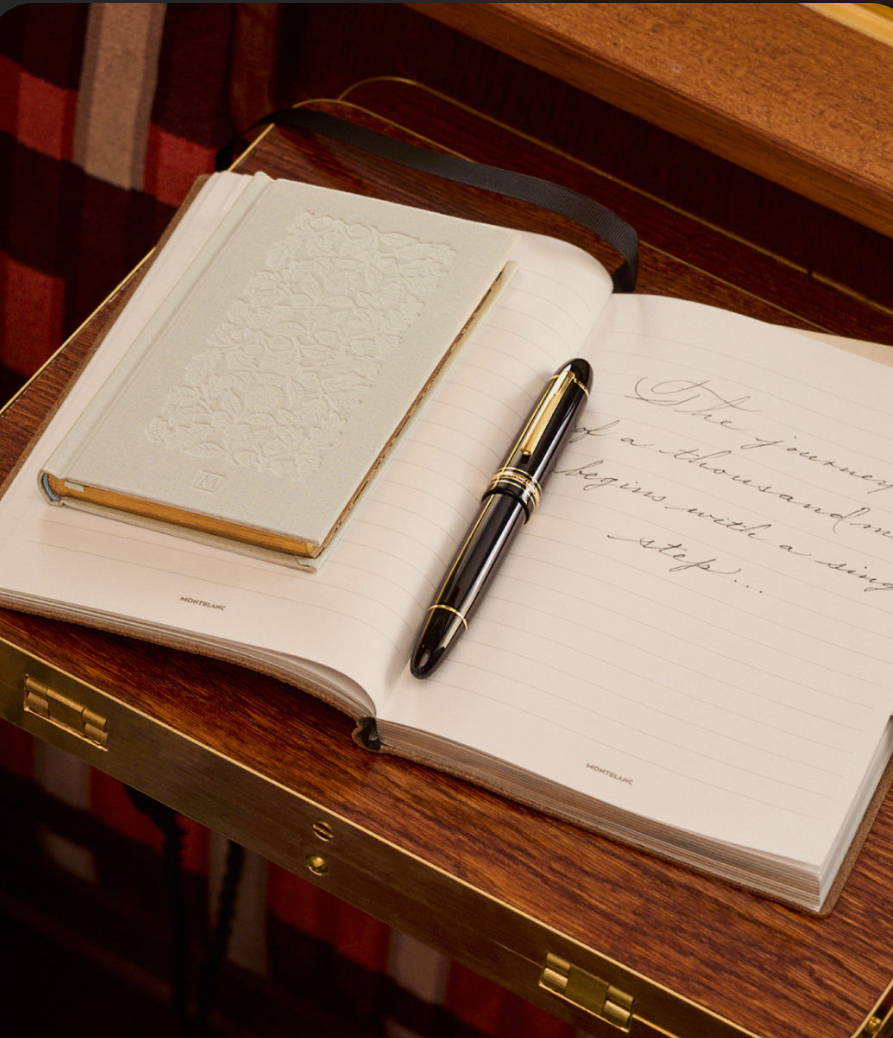 The journey
of a thousand m
begins with a sing
step...
MONTBLANC
MONTBLANC